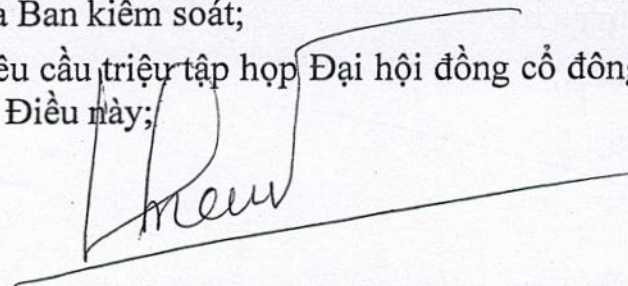 a Ban kiểm soát;
êu cầu triệu tập họp Đại hội đồng cổ đông
Điều này;